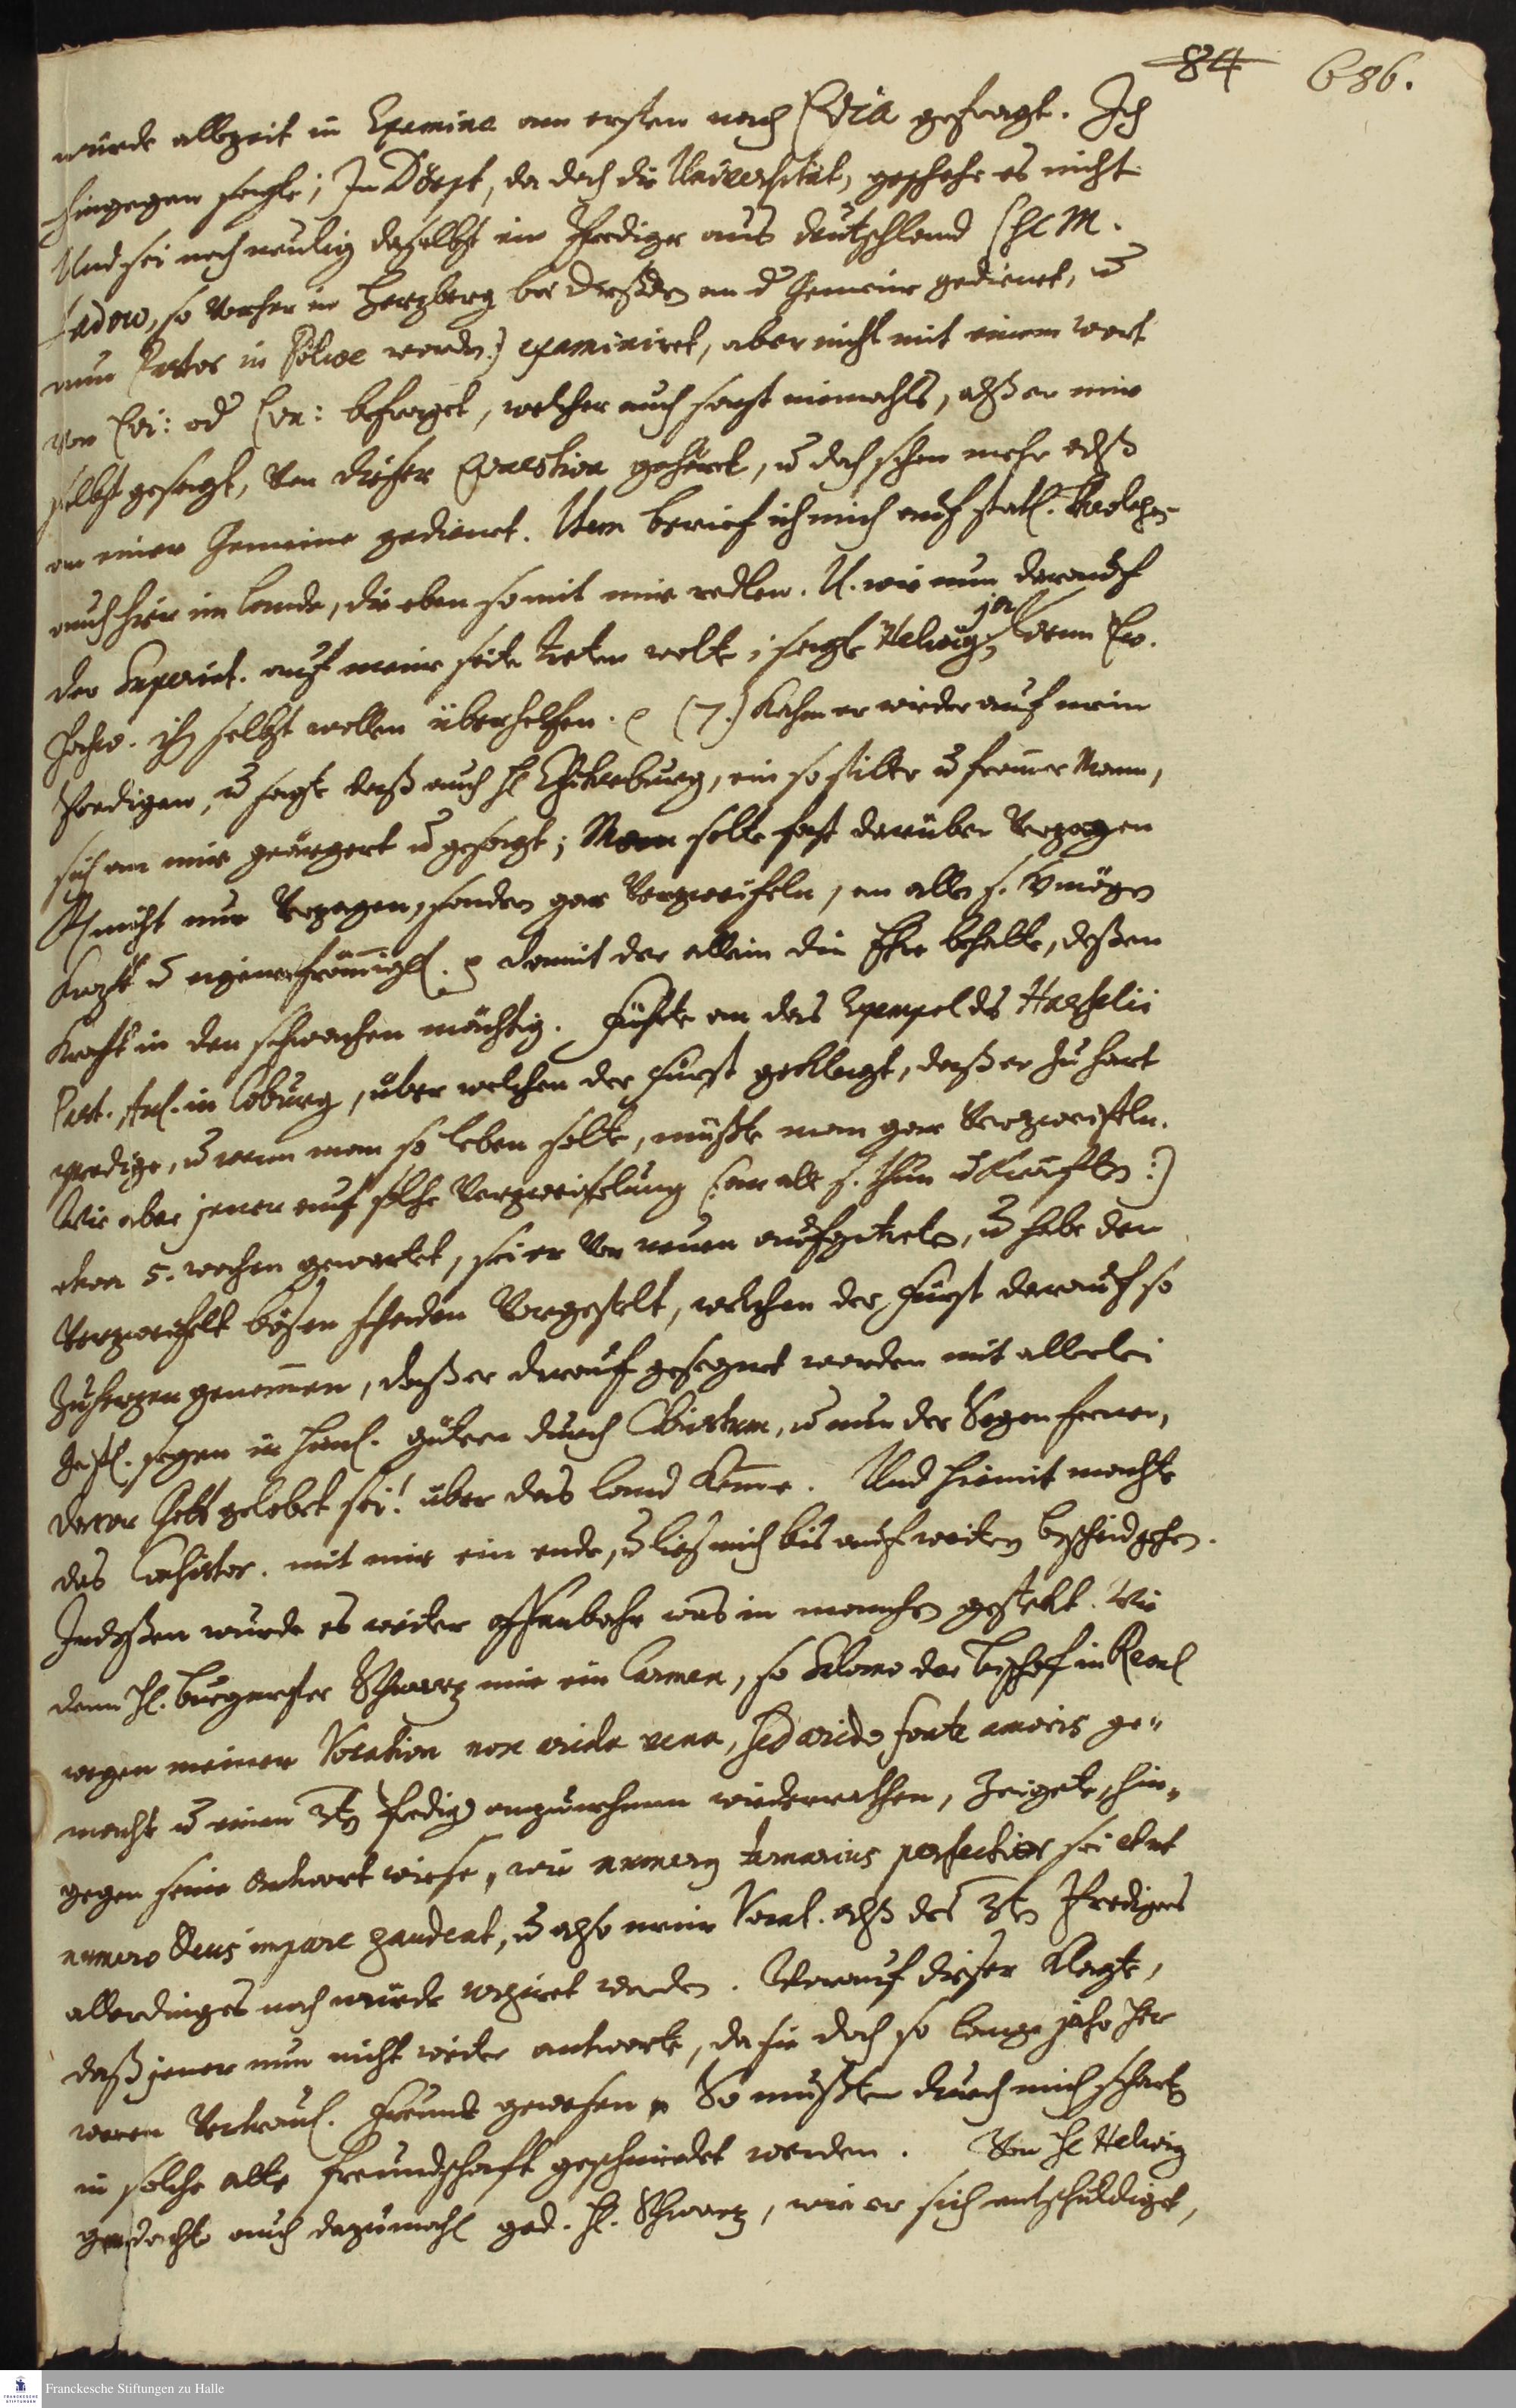 84 686.
würde allezeit in Examine am ersten nach gefragt. Ich
hingegen sagte; In Dörpt, da doch die Universität, geschehe es nicht
Und sei noch neulig daselbst ein Prediger aus deutschland (H M.
Ladow, so vorher in Herzberg bei Dreßden an d Gemeine gedienet, u
nun Pastor in Pölwe worden) examiniret, aber nicht mit einem wort
von od befraget, welcher auch sonst niemahls, alß er mir
selbst gesagt, von dieser Quaestion gehöret, u doch schon mehr alß
an einer Gemeine gedienet. Item berief ich mich auf
auch hier im lande, die eben so mit mir redten. U. wie nun darauf
der Superint. auf meine seite treten wolte; sagte Helwig, ja denn Ew.
Hochw. ihm selbst wollen überhelfen. (7.) Kahm er wieder auf mein
Predigen, u sagte daß auch H , ein so stiller u fromer Mann,
sich an mir geärgert u gesagt; Man solte fast darüber verzagen
nicht nur verzagen, sondern gar verzweifeln, an alle s. vmögen
Kraft u eigener frömigk. damit der allein die Ehre behalte, deßen
Kraft in den schwachen mächtig. Führte an das Exempel des Haefelii
Past. in Coburg, über welchen der Fürst geklagt, daß er zu hart
predige, u wenn man so leben solte, müste man gar verzweifeln.
Wie aber jener auf solche Verzweifelung (:an alle s. thun u Kräften:)
etwa 5. wochen gewartet, sei er von neuen aufgetreten, u habe den
verzweifelt bösen schaden vorgestelt, welchen der Fürst darauf so
zu herzen genommen, daß er darauf gesegnet worden mit allerlei
Geistl. segen in himl. gütern durch Christum, u nun der Segen ferner,
davor Gott gelobet sei! über das land komme. Und hiemit machte
das Consistor. mit mir ein ende, u ließ mich bis auf weitern bescheid gehen.
Indeßen wurde es weiter offenbahr was in manchen gestekt. Wie
denn H. Burgemster Schwartz mir ein Carmen, so Salomo der bischof in Reval
wegen meiner Vocation non arida vena, sed arido fonte amoris ge-
macht u einen 3ten Predig anzunehmen wiederrathen, zeigete, hin-
gegen seine Antwort wiese, wie numerus ternarius perfectior sei etut
numero Deus impare gaudeat, u also meine Vocat. alß des 3ten Predigers
allerdinges noch würde werden. Worauf dieser klagte,
daß jener nun nicht wieder antworte, da sie doch so lange jahr her
waren vertraul. Freunde gewesen. So müßte durch mich
in solche alte freundschaft geschnitet werden. Von H Helwig
gedachte auch dazumahl ged. H. Schwartz, wie er sich entschuldiget,
Franckesche Stiftungen zu Halle